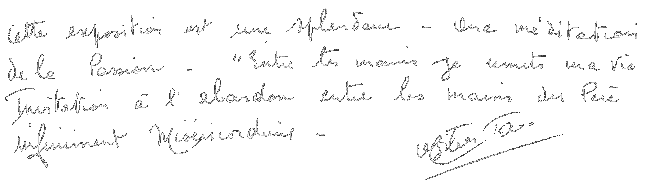 Cette exposition est une splendeur - Une méditation
de la Passion - "Entre tes mains je remets ma vie
Invitation à l'abandon entre les mains du Père
infiniment Miséricordieux -